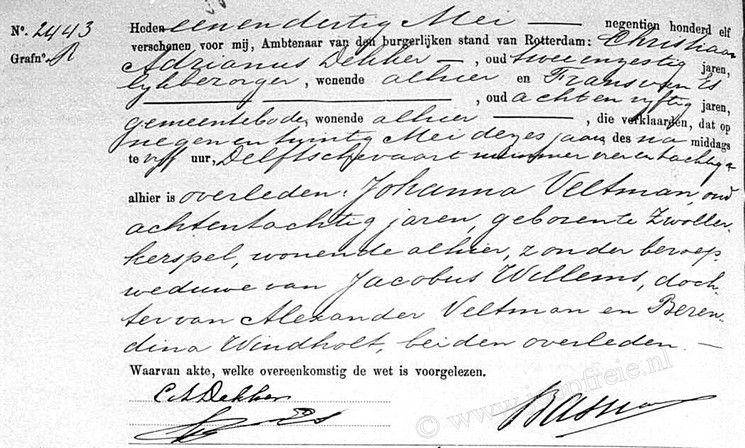 Nº. 2443
Grafnº. R
Heden eenendertig Mei — negentien honderd elf
verschenen voor mij, Ambtenaar van den burgerlijken stand van Rotterdam: Christiaan
Adrianus Dekker —, oud tweeenzestig jaren,
lijkbezorger, wonende alhier en Frans van Es
— —, oud achtenvijftig jaren,
gemeentebode, wonende alhier —, die verklaarden, dat op
negenentwintig Mei dezes jaars, des na middags
te vijf uur, Delftschevaart nummer vierentachtig
alhier is overleden: Johanna Veltman, oud
achtentachtig jaren, geboren te Zwoller-
kerspel, wonende alhier, zonder beroep
weduwe van Jacobus Willems, doch-
ter van Alexander Veltman en Beren-
dina Windholt, beiden overleden. —
Waarvan akte, welke overeenkomstig de wet is voorgelezen.
C A Dekker
Es